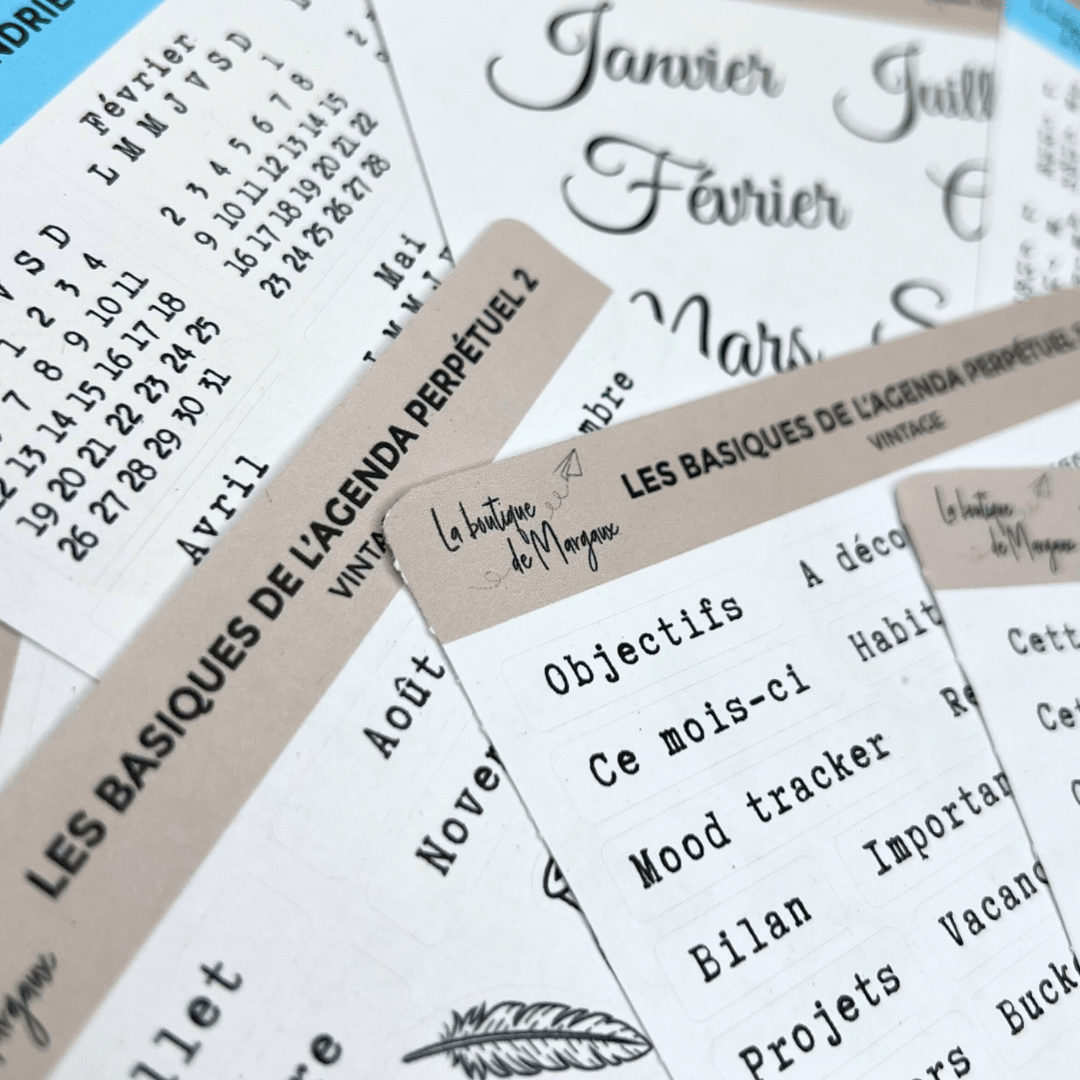 Février
L M M J V S D
1
2 3 4 5 6 7 8
9 10 11 12 13 14 15
16 17 18 19 20 21 22
23 24 25 26 27 28
V S D
1 2 3 4
7 8 9 10 11
12 13 14 15 16 17 18
19 20 21 22 23 24 25
26 27 28 29 30 31
Mai
Avril
Janvier
Juill
Février
Mars
LES BASIQUES DE L'AGENDA PERPÉTUEL 2
VINTA
Août
Novem
llet
re
mbre
La boutique
de Margaux
LES BASIQUES DE L'AGENDA PERPÉTUEL
VINTAGE
Objectifs
A déco
Ce mois-ci
Habit
Mood tracker
Re
Bilan
Importan
Projets
Vacanc
Bucke
ers
La boutique
de Margaux
Cett
Cet